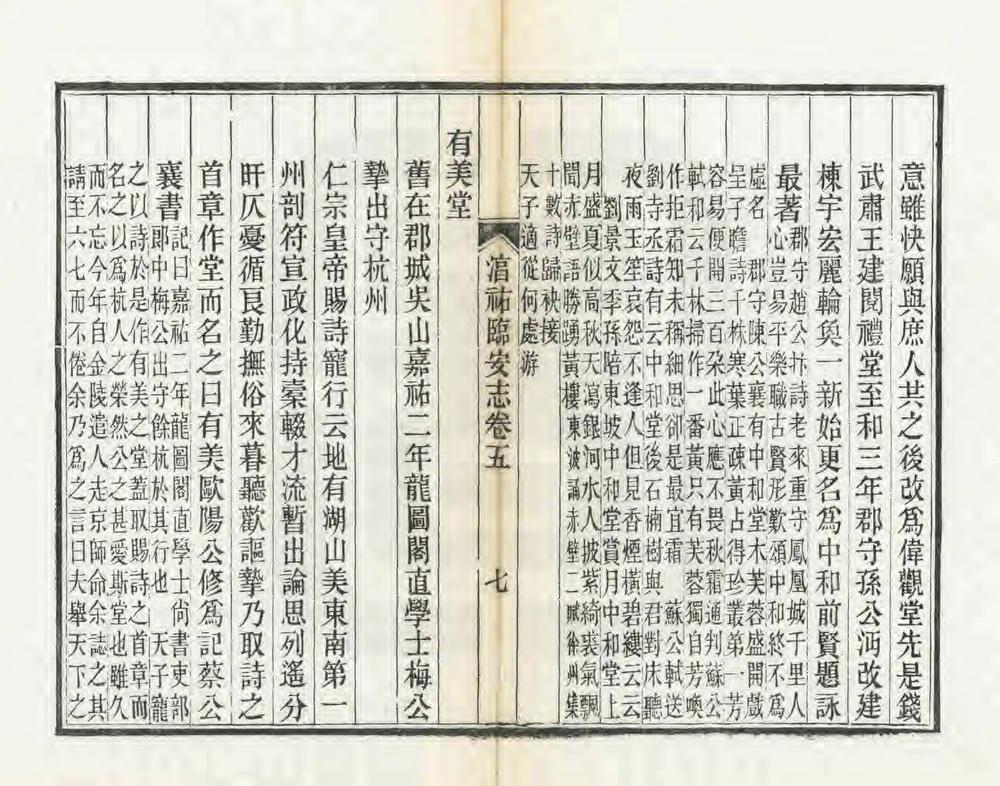 意雖快願與庶人共之後改爲偉觀堂先是錢
武肅王建閱禮堂至和三年郡守孫公沔改建
棟宇宏麗輪奐一新始更名爲中和前賢題詠
最著
郡守趙公抃詩老來重守鳳凰城千里人
心豈易平樂職古賢形歎頌中和終不爲
虛名　郡守陳公襄有中和堂木芙蓉盛開戲
呈子瞻詩千株寒葉正疎黃占得珍叢第一芳
容易便開三百朵此心應不畏秋霜通判蘇公
軾和云千林掃作一番黃只有芙蓉獨自芳喚
作拒霜知未稱細思卻是最宜霜　蘇公軾送
劉寺丞詩有云中和堂後石楠樹與君對床聽
夜雨玉笙哀怨不逢人但見香煙橫碧縷云云
劉景文李孫陪東坡中和堂賞月中和堂上
月盛夏似高秋天瀉銀河水人披紫綺裘氣飄
間赤壁語勝踴黃樓東波誦赤壁二賦徐州集
十數詩歸袂接
天子適從何處游
湻祐臨安志卷五　七
有美堂
舊在郡城吳山嘉祐二年龍圖閣直學士梅公
摯出守杭州
仁宗皇帝賜詩寵行云地有湖山美東南第一
州剖符宣政化持橐輟才流暫出論思列遙分
旰仄憂循良勤撫俗來暮聽歡謳摯乃取詩之
首章作堂而名之曰有美歐陽公修爲記蔡公
襄書
記曰嘉祐二年龍圖閣直學士尚書吏部
郎中梅公出守餘杭於其行也　天子寵
之以詩於是作有美之堂蓋取賜詩之首章而
名之以爲杭人之榮然公之甚愛斯堂也雖久
而不忘今年自金陵遣人走京師命余誌之其
請至六七而不倦余乃爲之言曰夫舉天下之